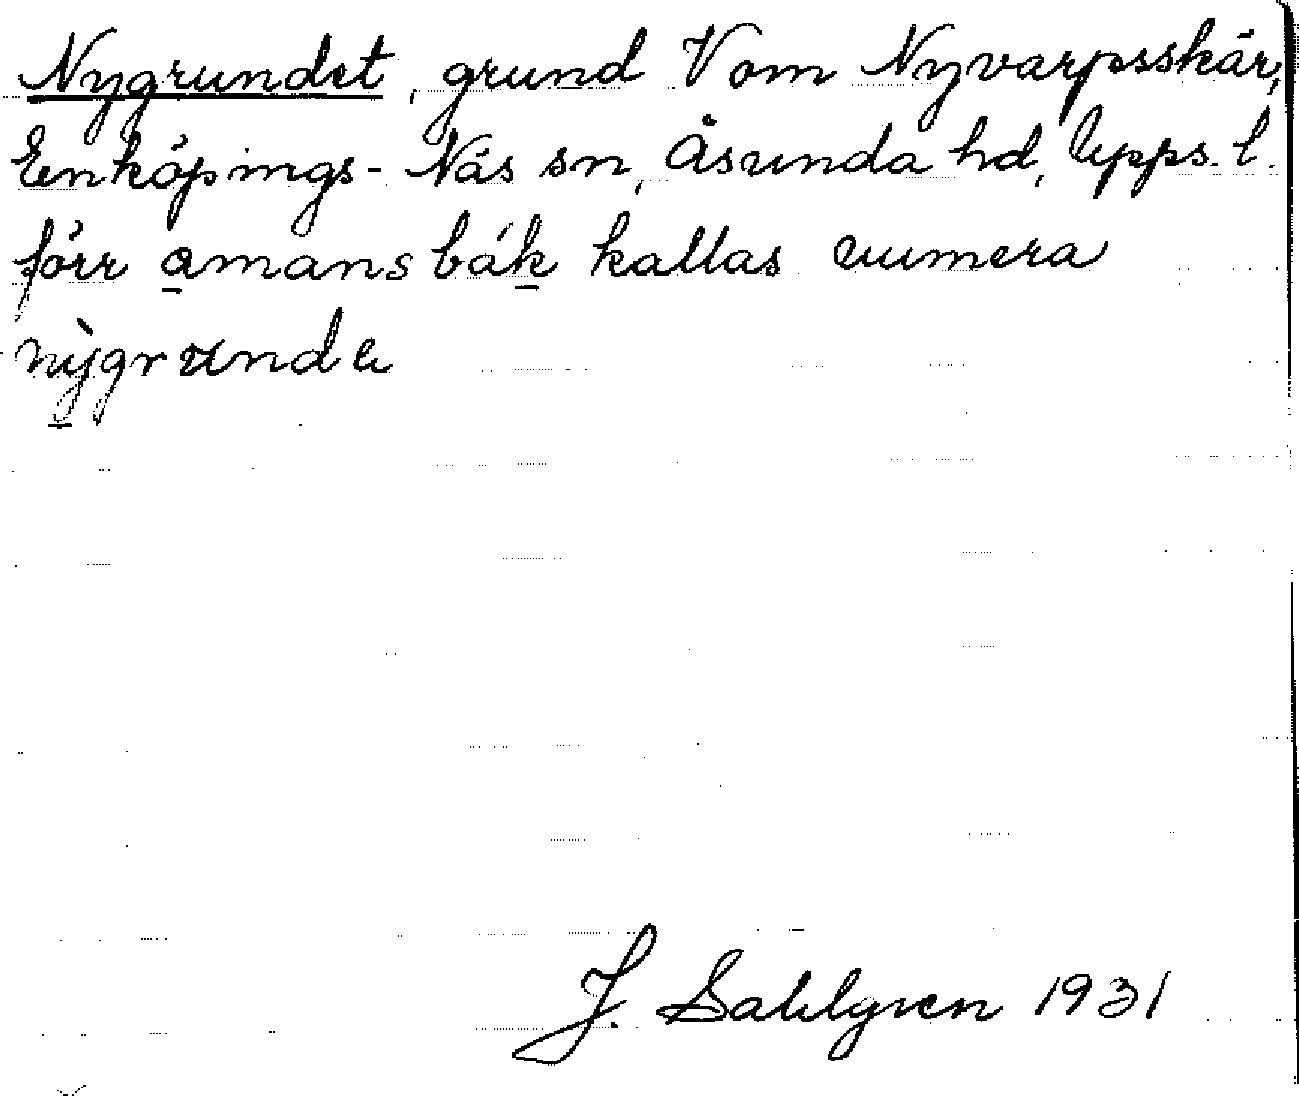 Nygrundet, grund V om Nyvarpsskär,
Enköpings-Näs sn, Åsunda hd, Upps. l.
förr amansbåk kallas numera
nỳgrunde
J. Sahlgren 1931